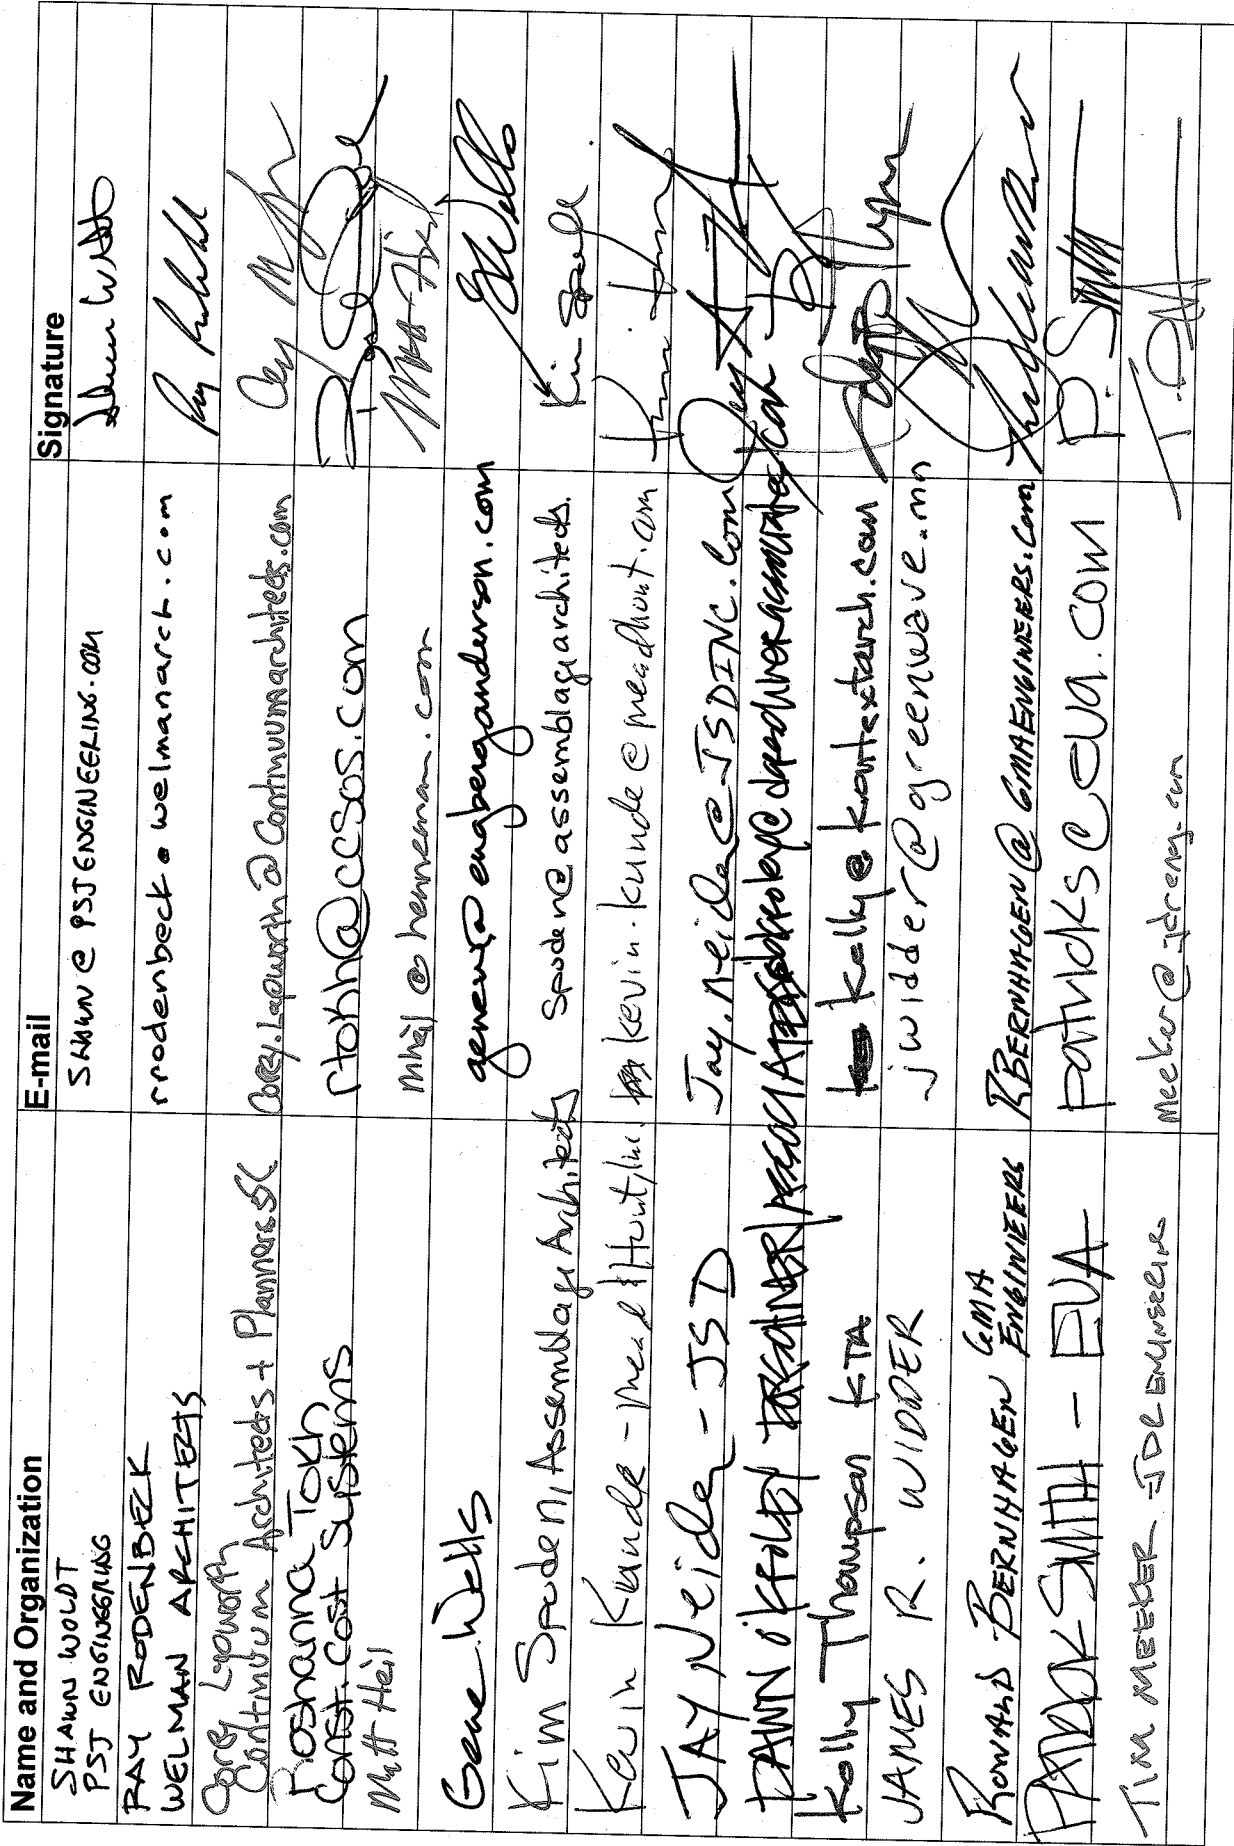 Name and Organization E-mail Signature
SHAWN WOLDT
PSJ ENGINEERING SHAWN @ PSJENGINEERING.COM
RAY RODENBECK
WELMAN ARCHITECTS rrodenbeck@welmanarch.com
Corey Lapworth
Continuum Architects + Planners SC Corey.Lapworth@Continuumarchitects.com
Roshanna Tokh
Const. Cost Systems rtokh@ccsos.com
Matt Heil mheil@henneman.com
Gene Wells genew@engberganderson.com
Kim Spoden, Assemblage Architects Spoden@assemblagearchitects.
Kevin Kunde - Mead & Hunt, Inc. kevin.kunde@meadhunt.com
JAY Neider - JSD Jay.neider@JSDINC.com
Kelly Thompson KTA kelly@kontextarch.com
JAMES R. WIDDER jwidder@ogreenwave.mn
RONALD BERNHAGEN GMA ENGINEERS RBERNHAGEN@GMAENGINEERS.com
PATRICK SMITH - EUA patricks@eua.com P. Smith
TIM MEEKER - JDR ENGINEERING meeker@jdreng.com